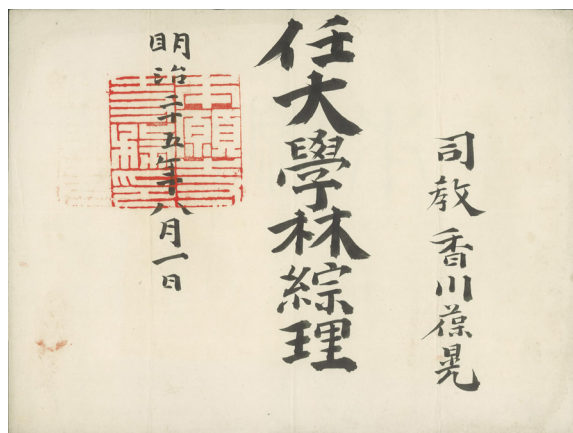 司教 香川葆晃
任大學林綜理
明治二十五年八月一日